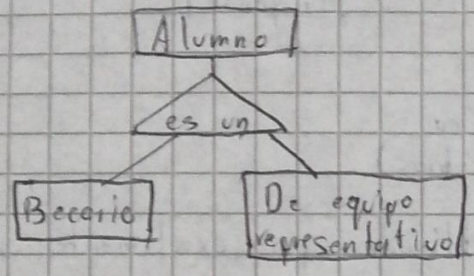 Alumno
es un
Becario
De equipo
representativo